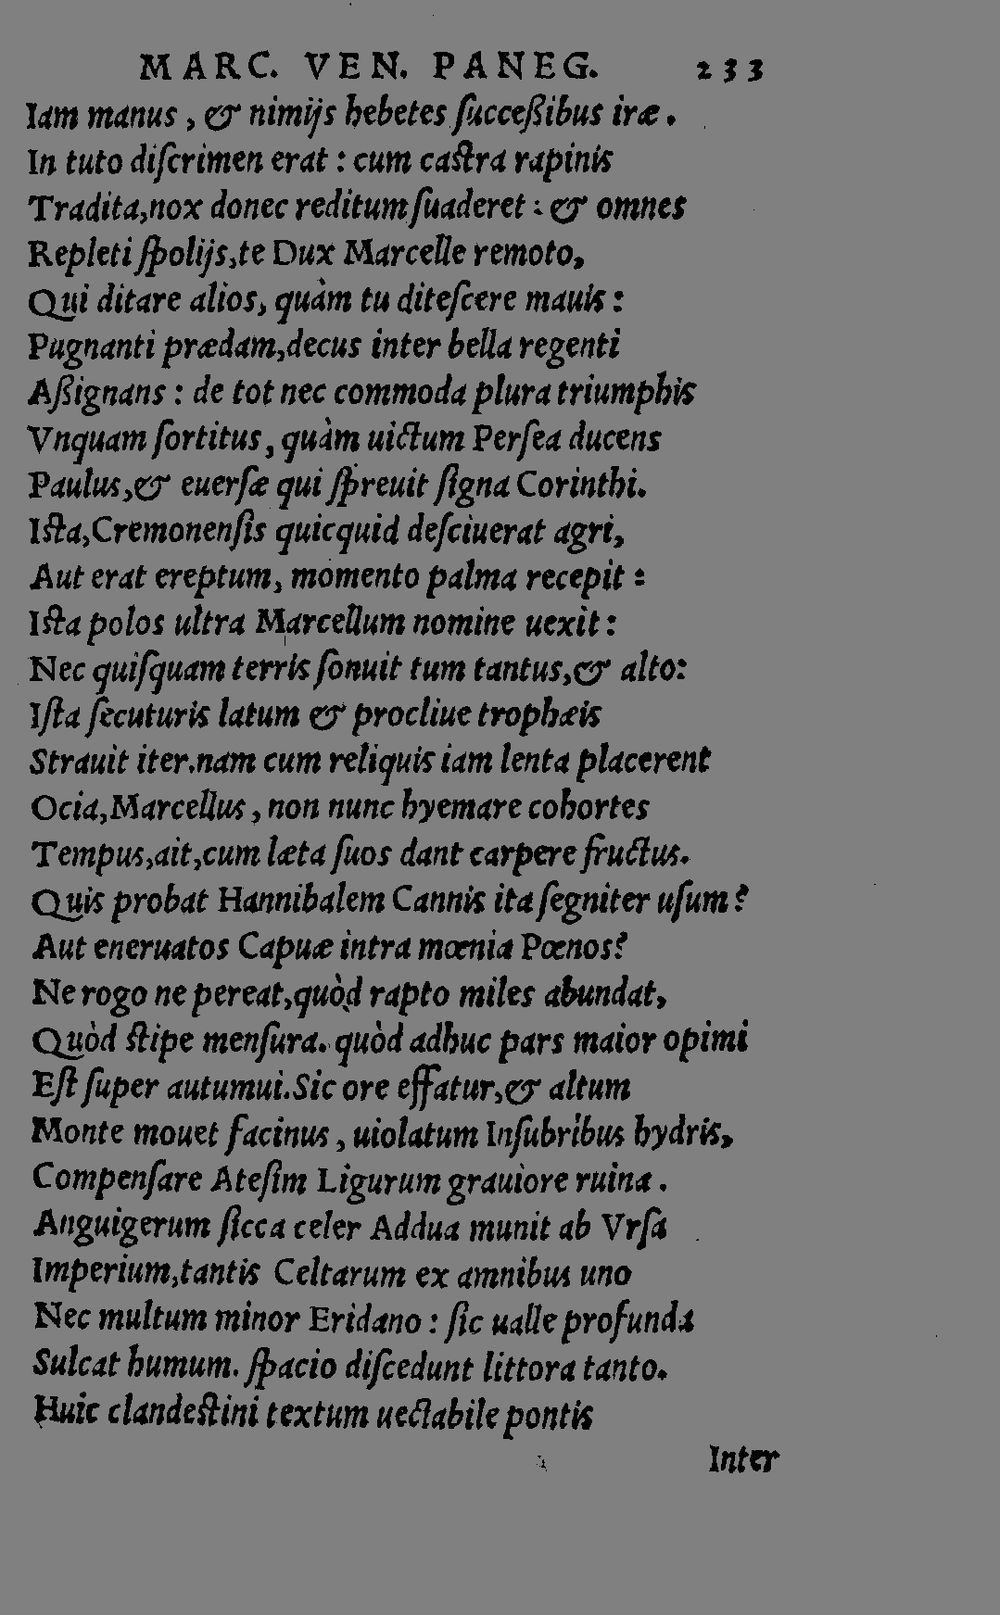 MARC. VEN. PANEG. 233
Iam manus, & nimijs hebetes ſucceßibus iræ.
In tuto diſcrimen erat : cum caſtra rapinis
Tradita, nox donec reditum ſuaderet : & omnes
Repleti ſpolijs, te Dux Marcelle remoto,
Qui ditare alios, quàm tu diteſcere mauis :
Pugnanti prædam, decus inter bella regenti
Aßignans : de tot nec commoda plura triumphis
Vnquam ſortitus, quàm uictum Perſea ducens
Paulus, & euerſæ qui ſpreuit ſigna Corinthi.
Iſta, Cremonenſis quicquid deſciuerat agri,
Aut erat ereptum, momento palma recepit :
Iſta polos ultra Marcellum nomine uexit :
Nec quiſquam terris ſonuit tum tantus, & alto:
Iſta ſecuturis latum & procliue trophæis
Strauit iter. nam cum reliquis iam lenta placerent
Ocia, Marcellus, non nunc hyemare cohortes
Tempus, ait, cum læta ſuos dant carpere fructus.
Quis probat Hannibalem Cannis ita ſegniter uſum?
Aut eneruatos Capuæ intra mœnia Pœnos?
Ne rogo ne pereat, quòd rapto miles abundat,
Quòd ſtipe menſura. quòd adhuc pars maior opimi
Eſt ſuper autumui. Sic ore effatur, & altum
Monte mouet facinus, uiolatum Inſubribus hydris,
Compenſare Ateſim Ligurum grauiore ruina.
Anguigerum ſicca celer Addua munit ab Vrſa
Imperium, tantis Celtarum ex amnibus uno
Nec multum minor Eridano : ſic ualle profunda
Sulcat humum. ſpacio diſcedunt littora tanto.
Huic clandeſtini textum uectabile pontis
Inter